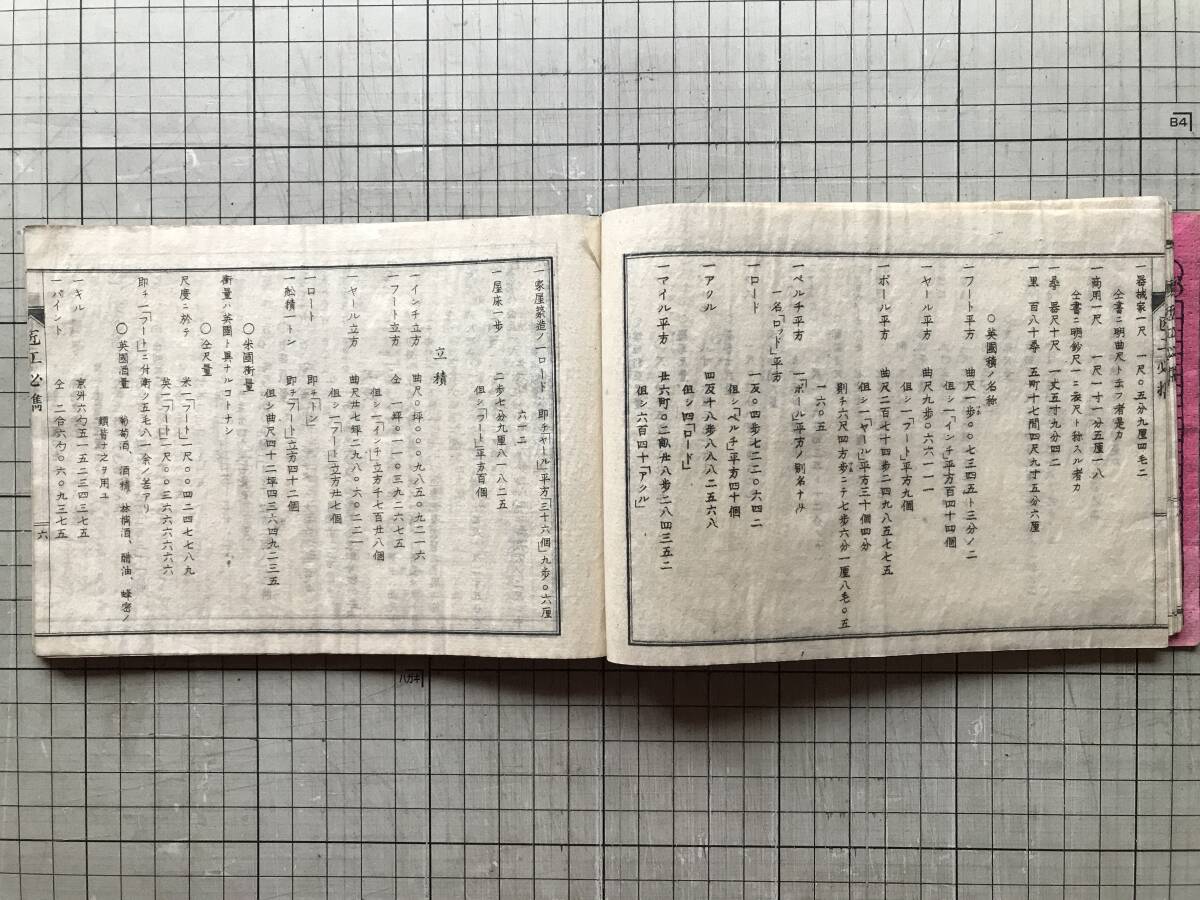 一器械家一尺　一尺〇五分九厘四毛二
仝書ニ明曲尺ト云フ者是カ
一商用一尺　一尺一寸一分五厘一八
仝書ニ明鈔尺一ニ表尺ト称スル者カ
一尋　器尺十尺　一丈五寸九分四二
一里　百八十尋　五町十七間四尺九寸五分六厘
〇英國積ノ名称
一フート平方　曲尺一歩〇〇七三四五ト三分ノ二
但シ一「インチ」平方百四十四個
一ヤール平方　曲尺九歩〇六六一一一
但シ一「フート」平方九個
一ポール平方　曲尺二百七十四歩二四九八五七七五
但シ一「ヤール」平方三十個四分
則チ六尺四方歩ニテ七歩六分一厘八毛〇五
一六〇五
一ペルチ平方　一「ポール」平方ノ別名ナル
一名「ロッド」平方
一ロード　一反〇四歩七二二〇六四二
但シ一「ペルチ」平方四十個
一アクル　四反十八歩八八二五六八
但シ四「ロード」
一マイル平方　廿六町〇二畝廿八歩二八四三五二
但シ六百四十「アクル」
一家屋築造ノ一ロード　即チ「ヤール」平方「三十六個」九歩〇六厘
六一二
一屋床一歩　二歩七分九厘八一八二五
但シ「フート」平方百個
立積
一インチ立方　曲尺〇坪〇〇〇九八五〇九二一六
一フート立方　仝一坪〇一一〇三九二六七五
但シ一「インチ立方千七百廿八個
一ヤール立方　曲尺廿七坪二九八〇六〇二二一
但シ一「フート」立方廿七個
一ロート　即チ一トン
一舩積一トン　即チ「フート」立方四十二個
但シ曲尺四十二坪四三六四九二三五
〇米國衡量
衝量ハ英國ト異ナルコトナシ
〇仝尺量
尺度ニ於テ　米一「フート」一尺〇〇四二四七七八九
英一「フート」一尺〇〇三六六六六六六
即チ一「フート」ニ付衝ノ五毛八一余ノ差アリ
〇英國酒量　葡萄酒、酒精、林檎酒、醋油、蜂蜜ノ
類皆チ之ヲ用ユ
一キル　京升六勺五一五二三四三七五
一パイント　仝二合六勺〇六〇九三七五
匠工必携
六
B4
ハガキ